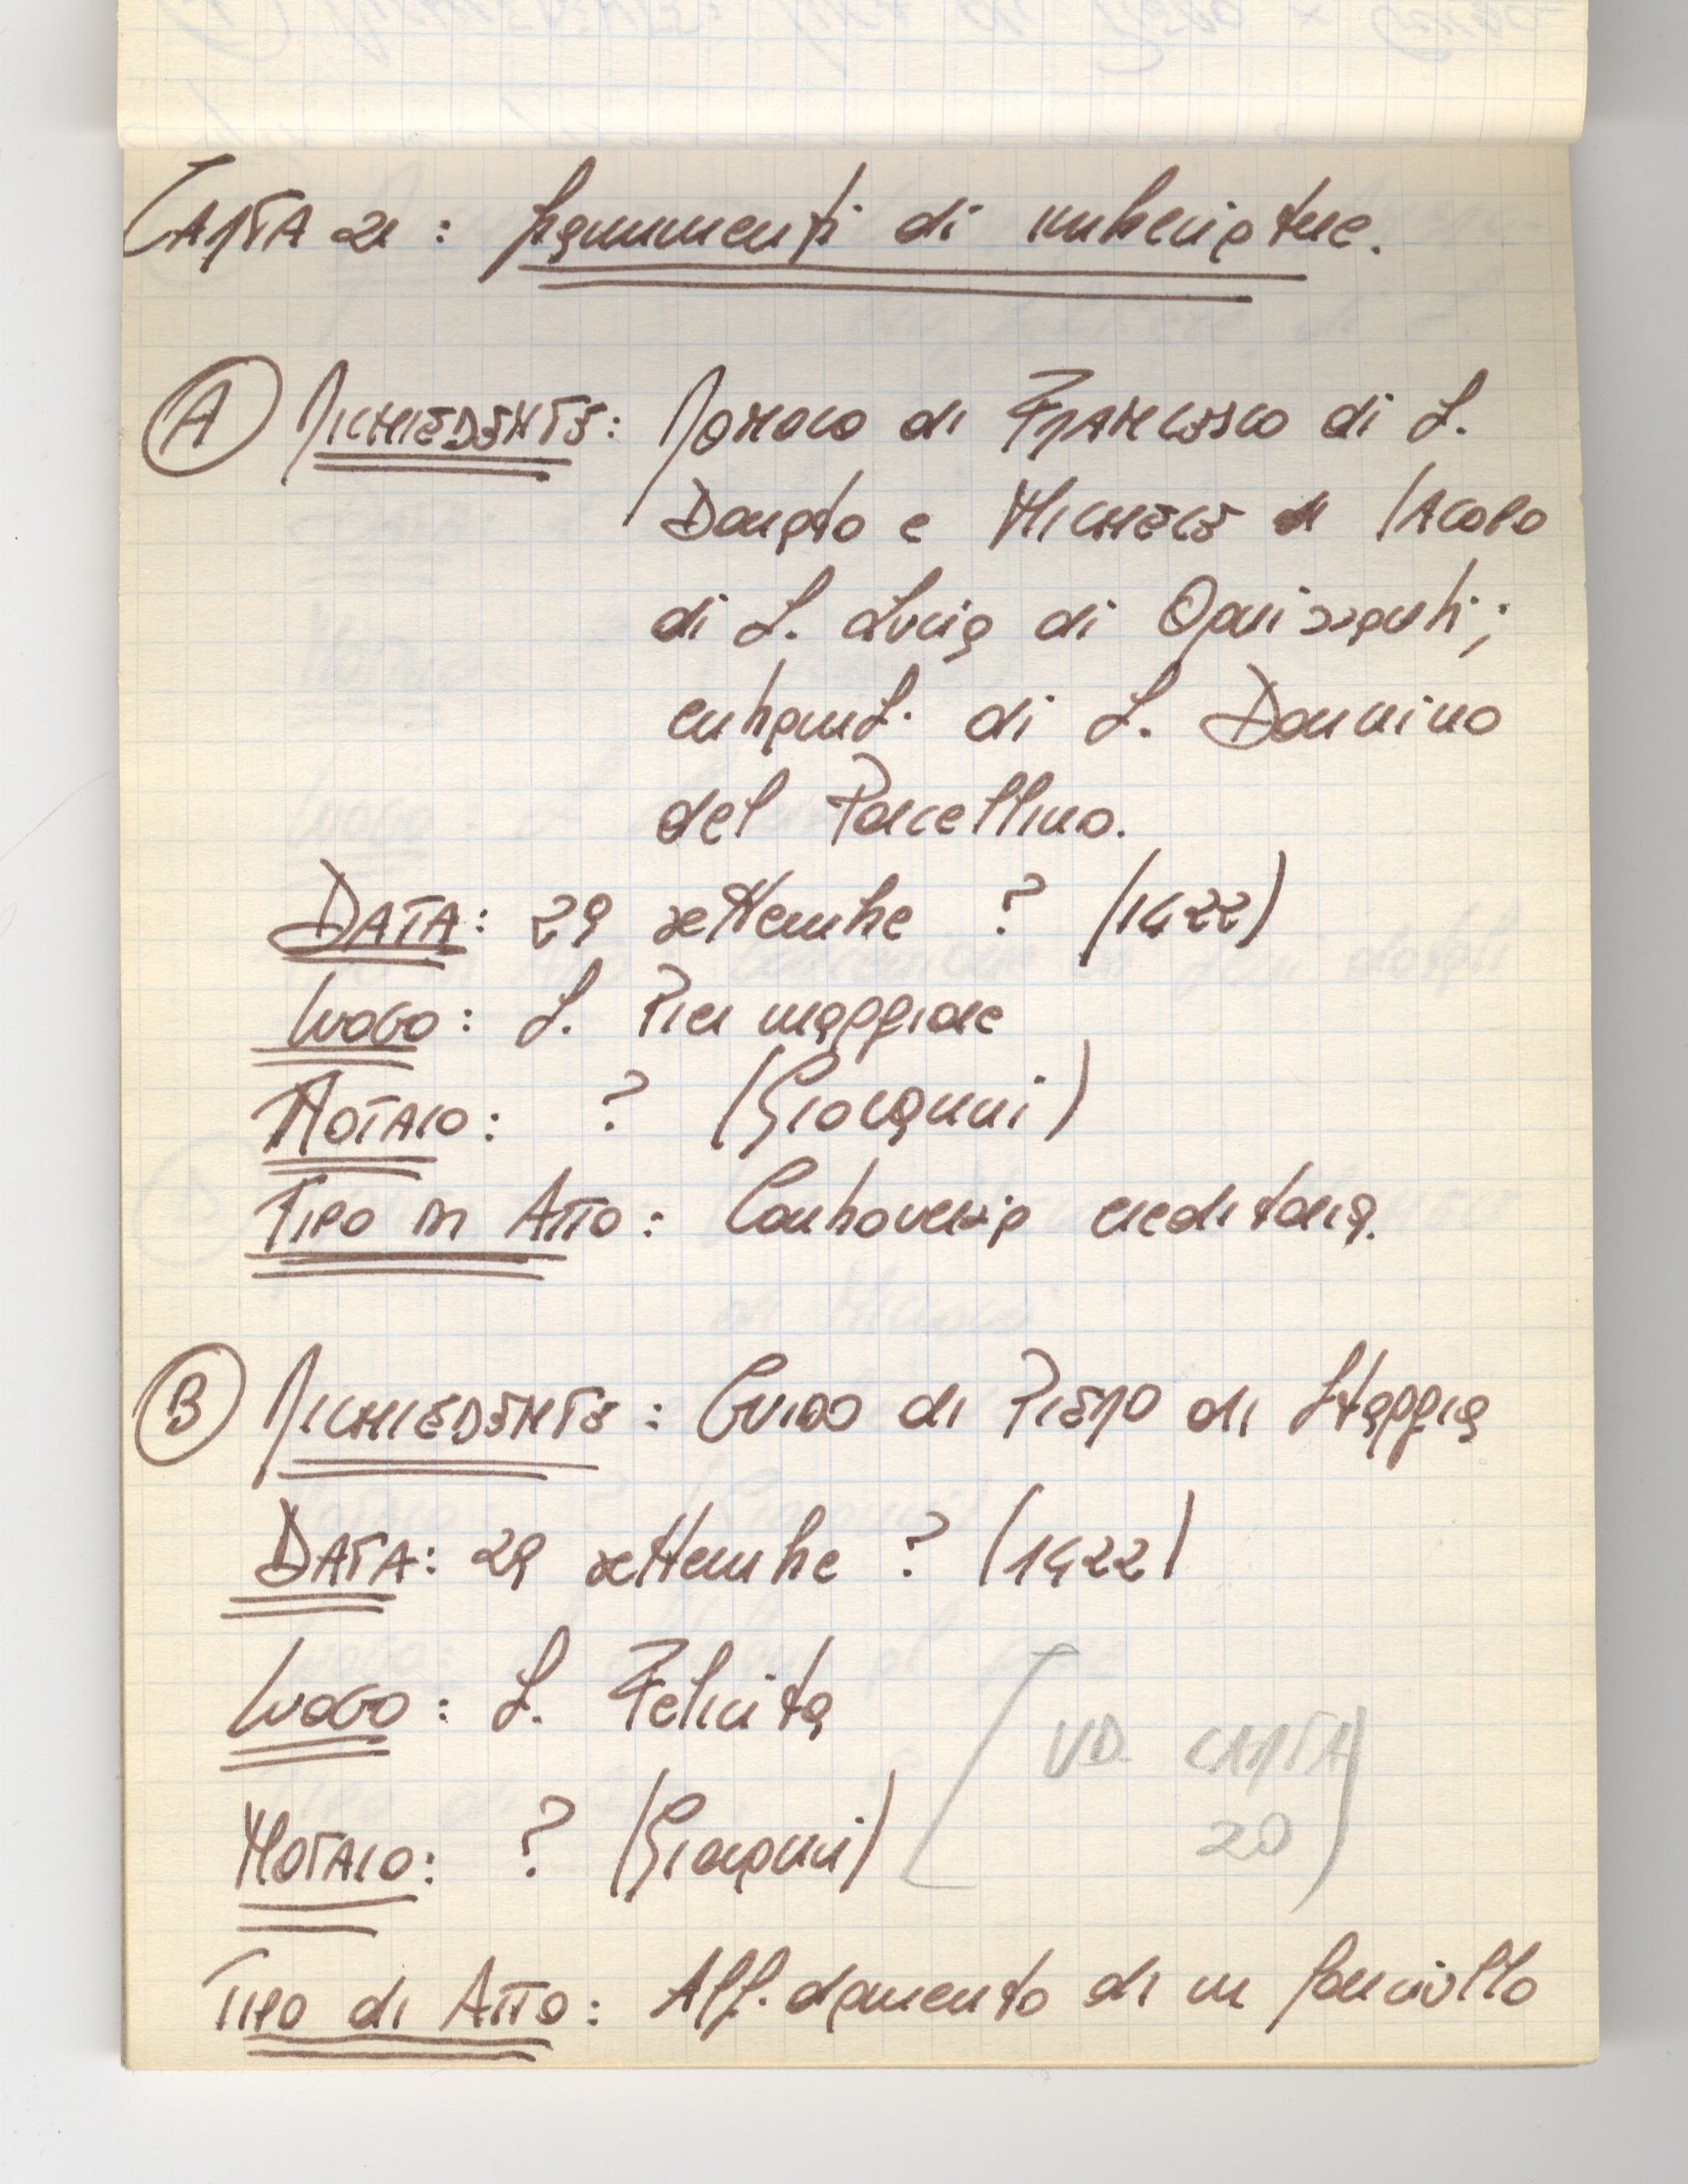 CARTA 21: frammenti di imbreviature.
A RICHIEDENTE: di FRANCESCO di S.
Donato e MICHELE di IACOPO
di S. Lucia di Ognissanti;
entramb. di S. Donnino
del Porcellino.
DATA: 29 settembre ? (1422)
LUOGO: S. Pier maggiore
NOTAIO: ? (Giovanni)
TIPO DI ATTO: Controversia ereditaria.
B RICHIEDENTE: GUIDO di PIERO di Staggia
DATA: 29 settembre ? (1422)
LUOGO: S. Felicita
[VD. CARTA
NOTAIO: ? (Giovanni)
20]
TIPO di ATTO: Affidamento di un fanciullo